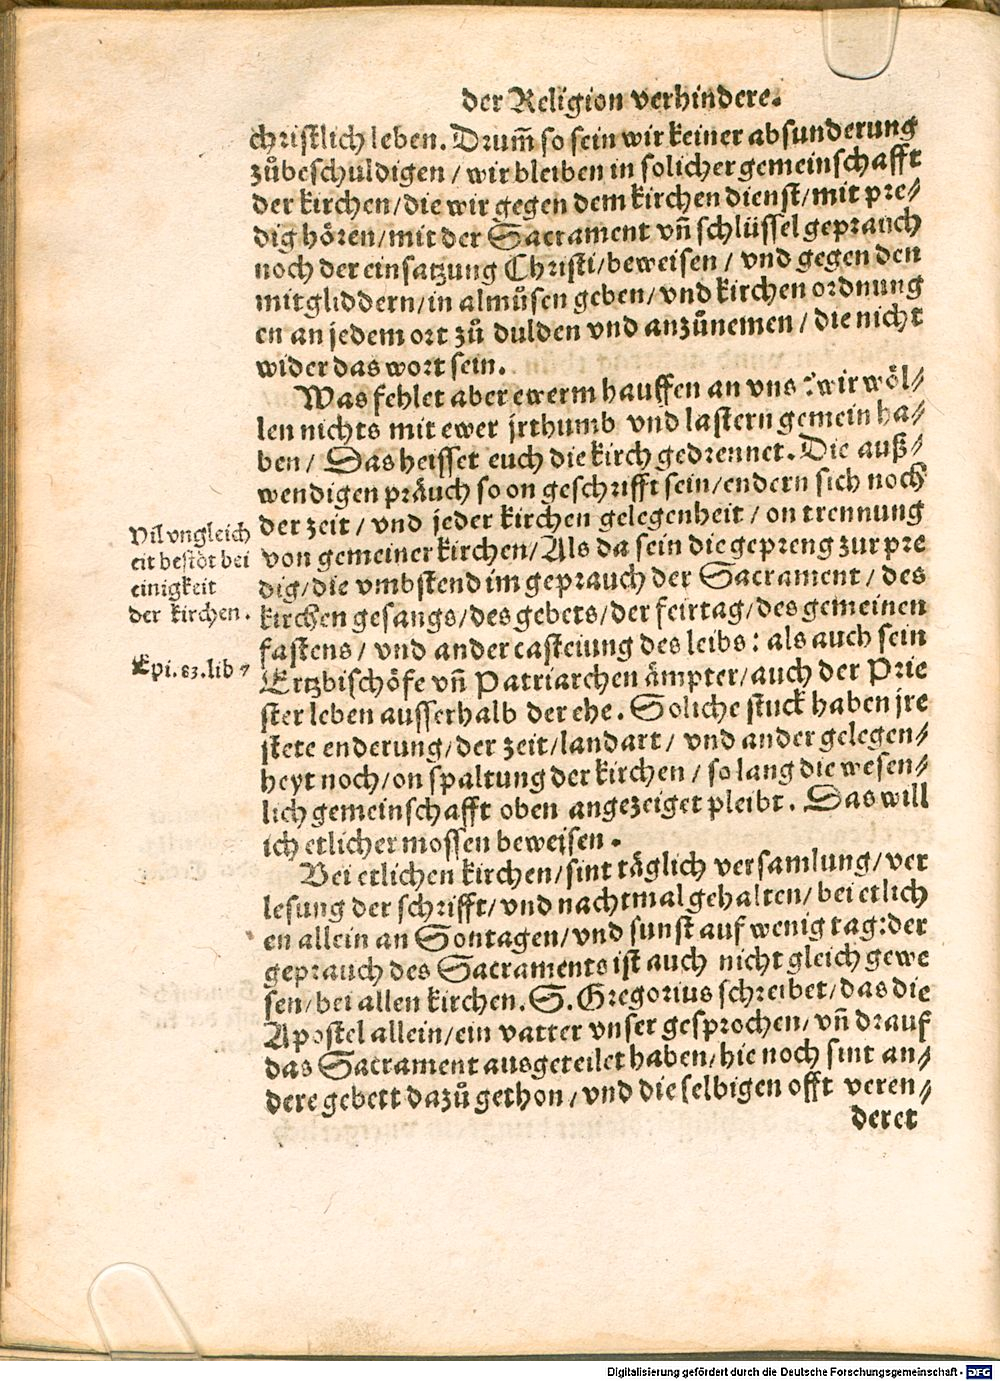 der Religion verhindere.
christlich leben. Drum̄ so sein wir keiner absunderung
zůbeschuldigen / wir bleiben in solicher gemeinschafft
der kirchen/die wir gegen dem kirchen dienst/mit pre⸗
dig hören/mit der Sacrament vn̄ schlüssel geprauch
noch der einsatzung Christi/beweisen / vnd gegen den
mitgliddern/in almůsen geben/vnd kirchen ordnung
en an jedem ort zů dulden vnd anzůnemen / die nicht
wider das wort sein.
Was fehlet aber ewerm hauffen an vns? wir wöl⸗
len nichts mit ewer jrthumb vnd lastern gemein ha⸗
ben / Das heisset euch die kirch gedrennet. Die auß⸗
wendigen präuch so on geschrifft sein/endern sich noch
der zeit / vnd jeder kirchen gelegenheit / on trennung
von gemeiner kirchen/Als da sein die gepreng zur pre
dig/die vmbstend im geprauch der Sacrament / des
kirchen gesangs/des gebets/der feirtag/des gemeinen
fastens / vnd ander casteiung des leibs: als auch sein
Ertzbischöfe vn̄ Patriarchen ämpter/auch der Prie
ster leben ausserhalb der ehe. Soliche stuck haben jre
stete enderung/der zeit/landart / vnd ander gelegen⸗
heyt noch/on spaltung der kirchen / so lang die wesen⸗
lich gemeinschafft oben angezeiget pleibt. Das will
ich etlicher mossen beweisen.
Bei etlichen kirchen/sint täglich versamlung/ver
lesung der schrifft/vnd nachtmal gehalten/bei etlich
en allein an Sontagen/vnd sunst auf wenig tag:der
geprauch des Sacraments ist auch nicht gleich gewe
sen/bei allen kirchen. S. Gregorius schreibet/das die
Apostel allein/ein vatter vnser gesprochen/vn̄ drauf
das Sacrament ausgeteilet haben/hie noch sint an⸗
dere gebett dazů gethon/vnd die selbigen offt veren⸗
deret
Vil vngleich
eit bestöt bei
einigkeit
der kirchen.
Epi. 83. lib 7
Digitalisierung gefördert durch die Deutsche Forschungsgemeinschaft - DFG